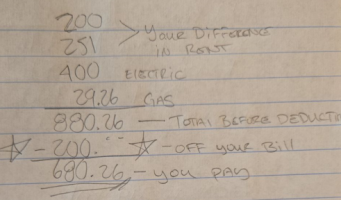 200 > Your Difference
251 in Rent
400 Electric
29.26 Gas
880.26 — Total Before Deducti
☆ -200.00 ☆ - off your Bill
680.26 - you pay